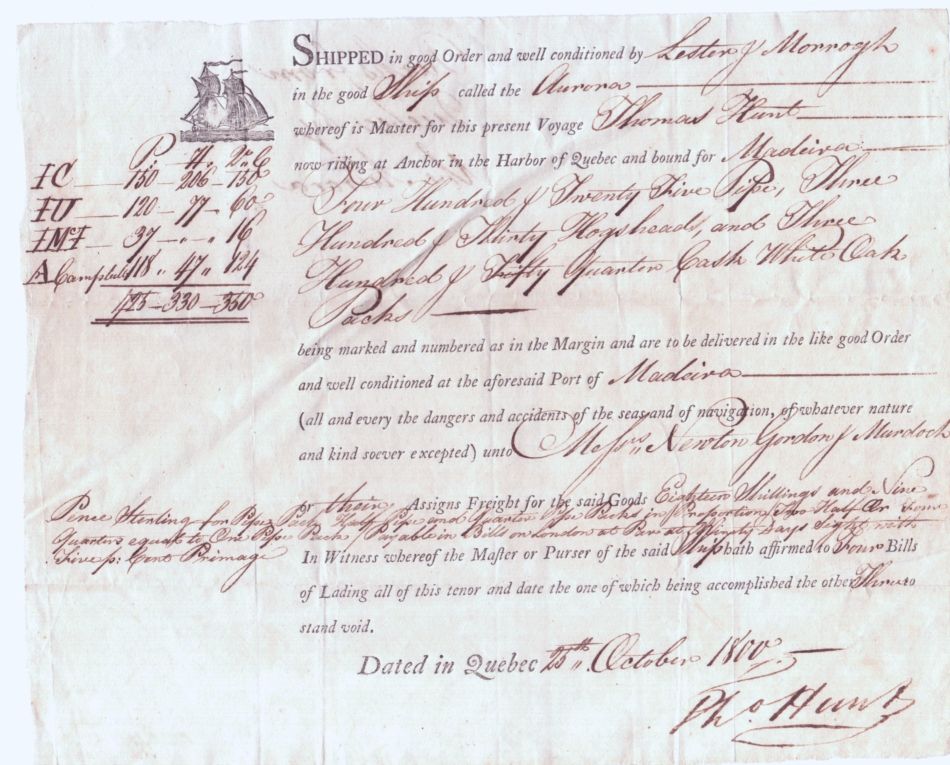 SHIPPED in good Order and well conditioned by Lester & Morrogh
in the good Ship called the Aurora
whereof is Master for this present Voyage Thomas Hunt
now riding at Anchor in the Harbor of Quebec and bound for Madeira
P. H. Qr C
IC 150 - 206 - 150
IU 120 - 77 - 60
IMcI 37 - " - " 16
A Campbell 118 " 47 " 124
425 - 330 - 350
Four Hundred & Twenty Five Pipe, Three
Hundred & Thirty Hogsheads, and Three
Hundred & Fifty Quarter Cask White Oak
Packs
being marked and numbered as in the Margin and are to be delivered in the like good Order
and well conditioned at the aforesaid Port of Madeira
(all and every the dangers and accidents of the seas and of navigation, of whatever nature
and kind soever excepted) unto Messrs. Newton Gordon & Murdoch
or their Assigns Freight for the said Goods Eighteen Shillings and Nine
Pence Sterling for Pipe Pack Half Pipe and Quarter Pipe Packs in Proportion, Two Half Or Four
Quarters equal to One Pipe Pack, Payable in Bills on London at Par at Ninety days sight with
Five p: Cent Primage
In Witness whereof the Master or Purser of the said Ship hath affirmed to Four Bills
of Lading all of this tenor and date the one of which being accomplished the other Three to
stand void.
Dated in Quebec 25th October 1800
Tho Hunt